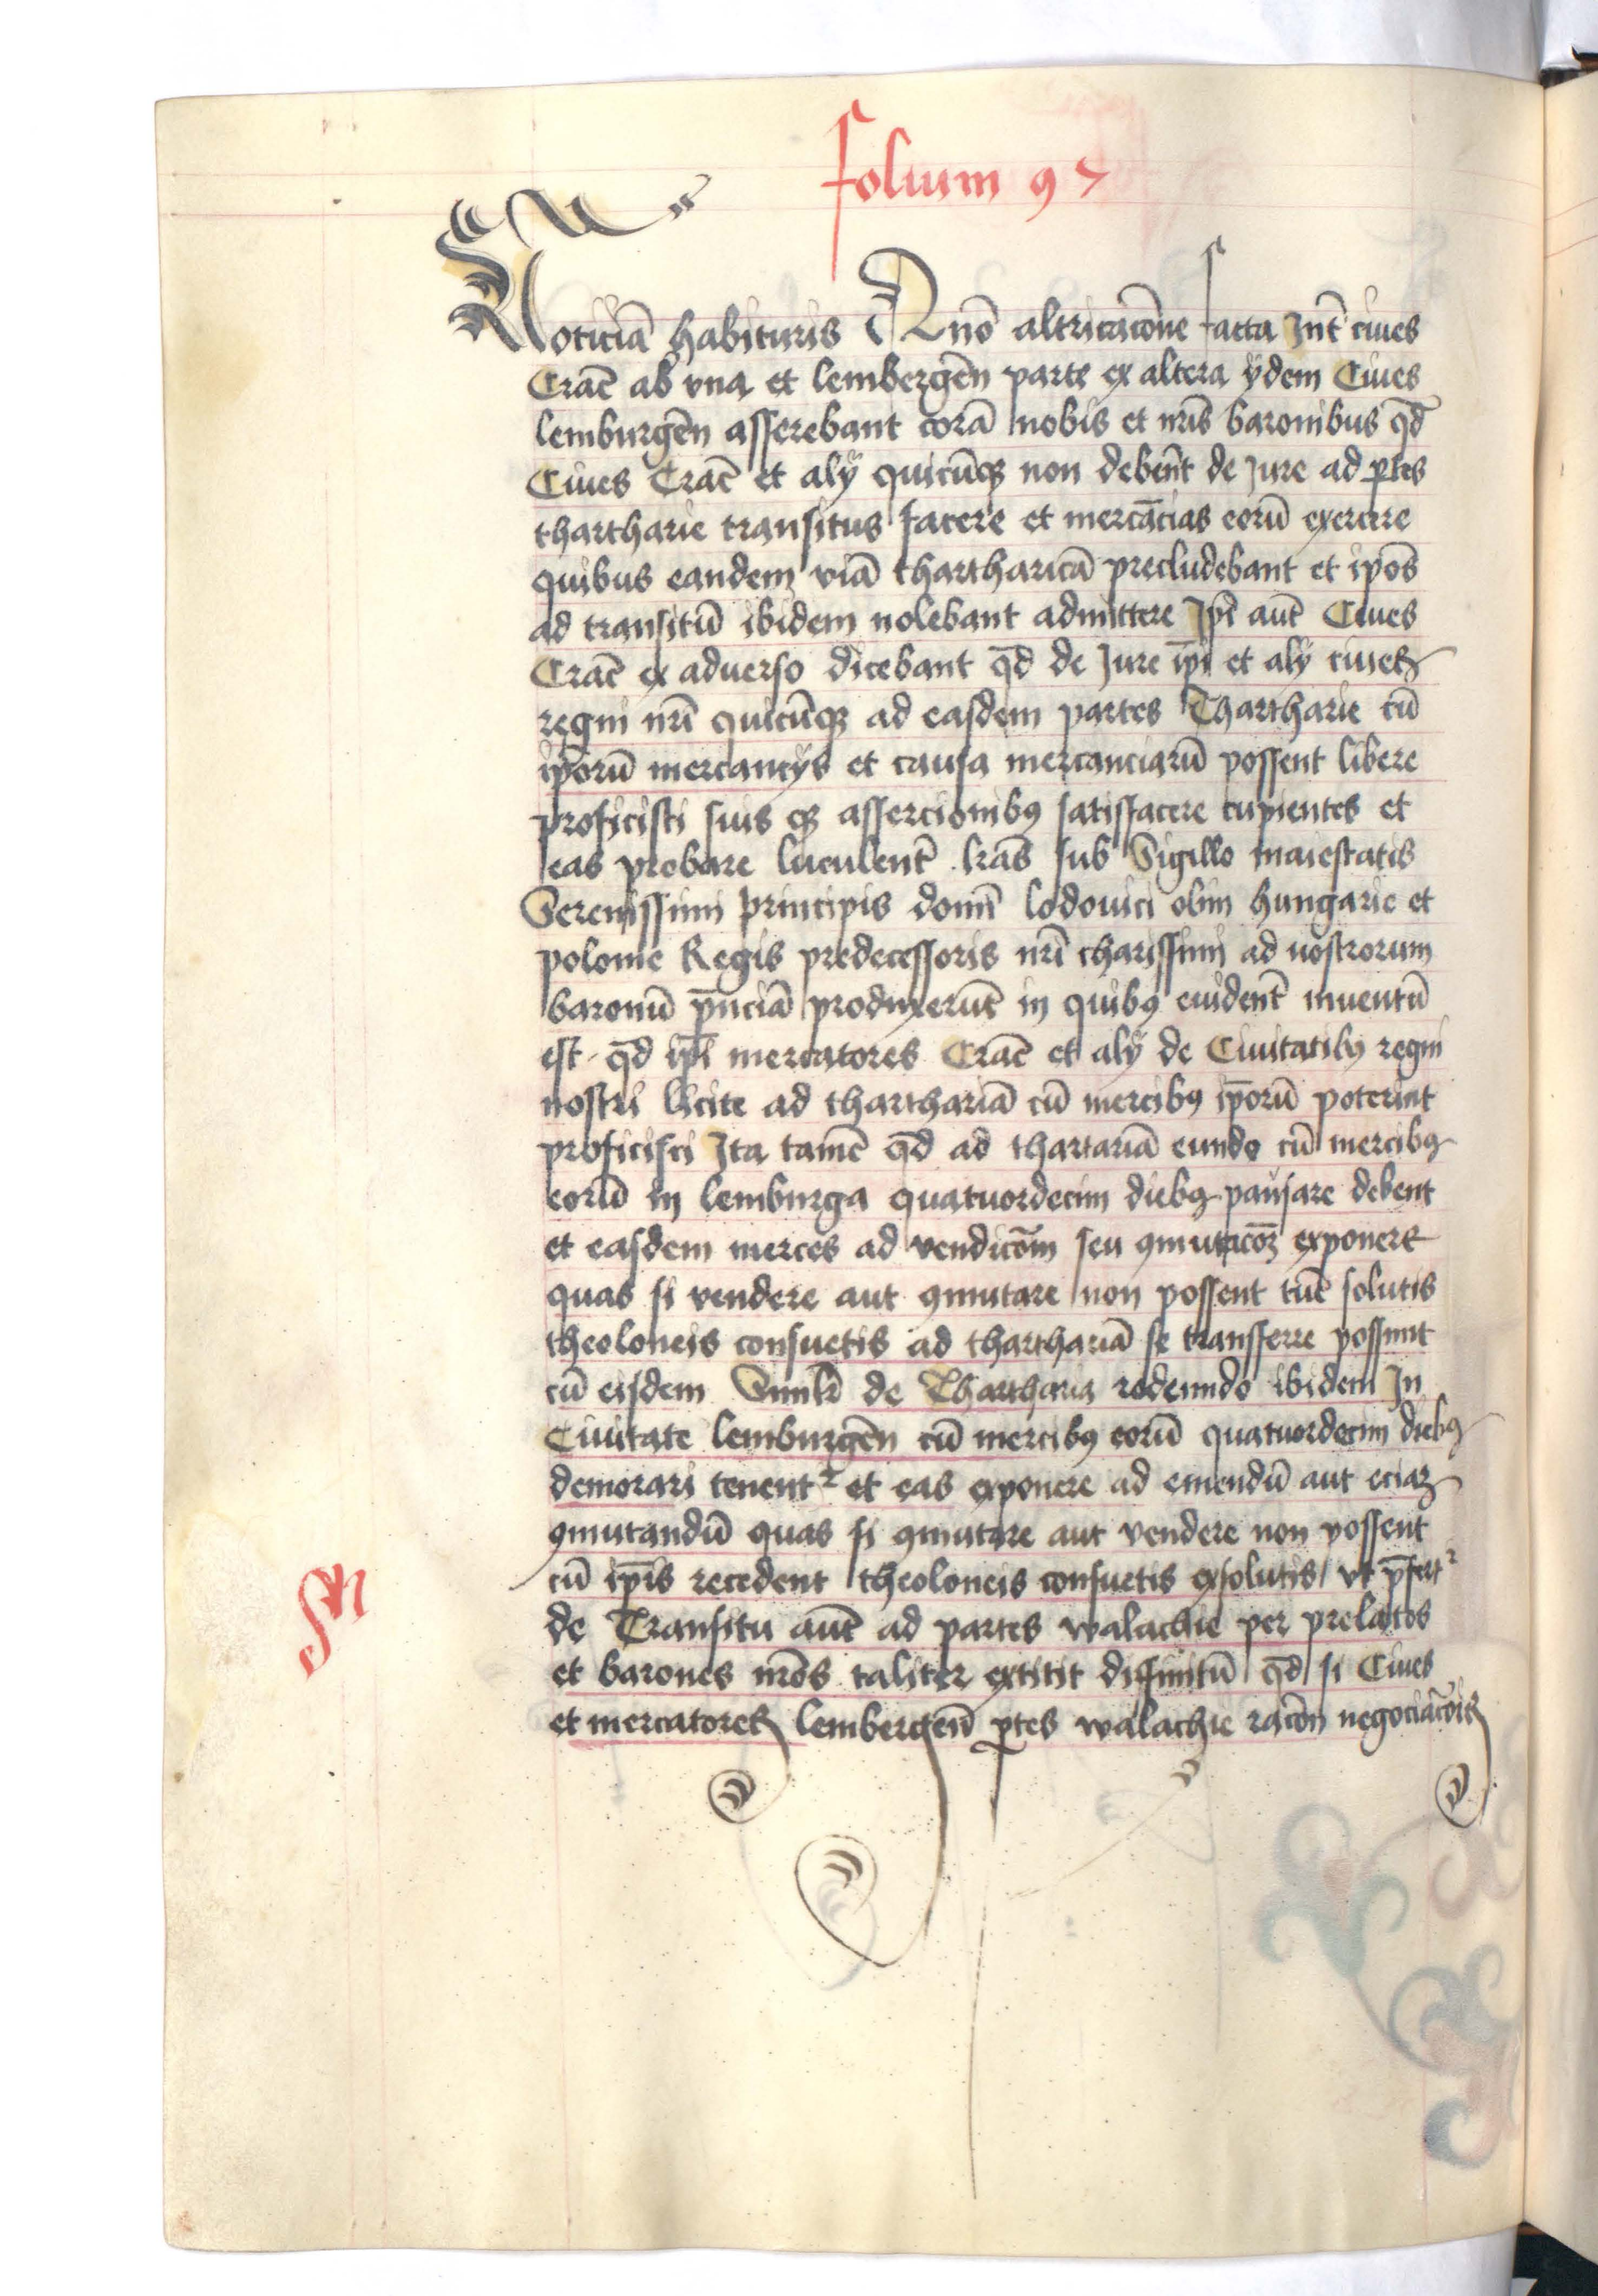 folium 97
Noticiā habituris Quō altricacōne facta Int̄ ciues
Crac̄ ab vna et lembergēn parte ex altera ÿdem Ciues
lemburgēn asserebant corā nobis et nr̄is baronibus qd̄
Ciues Crac̄ et alÿ quicūqȝ non debēnt de Jure ad ꝑtes
thartharie transitus facere et mercācias eorū exercere
quibus eandem viā thartharicā precludebant et ip̄os
ad transitū ibidem nolebant admittere Ip̄i aut̄ Ciues
Crac̄ ex aduerso dicebant qd̄ de Jure ip̄i et alÿ ciues
regni nr̄i quicūqȝ ad easdem partes Thartharie cū
ip̄orū mercancÿs et causa mercanciarū possent libere
proficisci suis qȝ assercionibꝰ satisfacere cupientes et
eas probare luculent̄ lr̄as sub Sigillo maiestatis
Serenissimi principis domī lodouici olim hungarie et
polonie Regis predecessoris nr̄i charissimi ad nostrorum
baronū p̄nciā produxerūt in quibꝰ euident̄ inuentū
est qd̄ ip̄i mercatores Crac̄ et alÿ de Ciuitatibꝰ regni
nostri licite ad tharthariā cū mercibꝰ ip̄orū poterint
proficisci Ita tamē qd̄ ad thartariā eundo cū mercibꝰ
eorū in lemburga quatuordecim diebꝰ pausare debent
et easdem merces ad vendicōm seu ꝯmutacōȝ exponere
quas si vendere aut ꝯmutare non possent tūc solutis
theoloneis consuetis ad tharthariā se transferre possunt
cū eisdem Simlr̄ de Thartharia redeundo ibidem In
Ciuitate lemburgēn cū mercibꝰ eorū quatuordecim diebꝰ
demorari tenentᷣ et eas exponere ad emendū aut eciaȝ
ꝯmutandū quas si ꝯmutare aut vendere non possent
cū ip̄is recedent theoloneis consuetis exsolutis vt p̄fertᷣ
de Transitu aut̄ ad partes walachie per prelatos
et barones nr̄os taliter extitit diffinitū qd̄ si Ciues
et mercatores lembergēn ꝑtes walachie racōn negociacōis